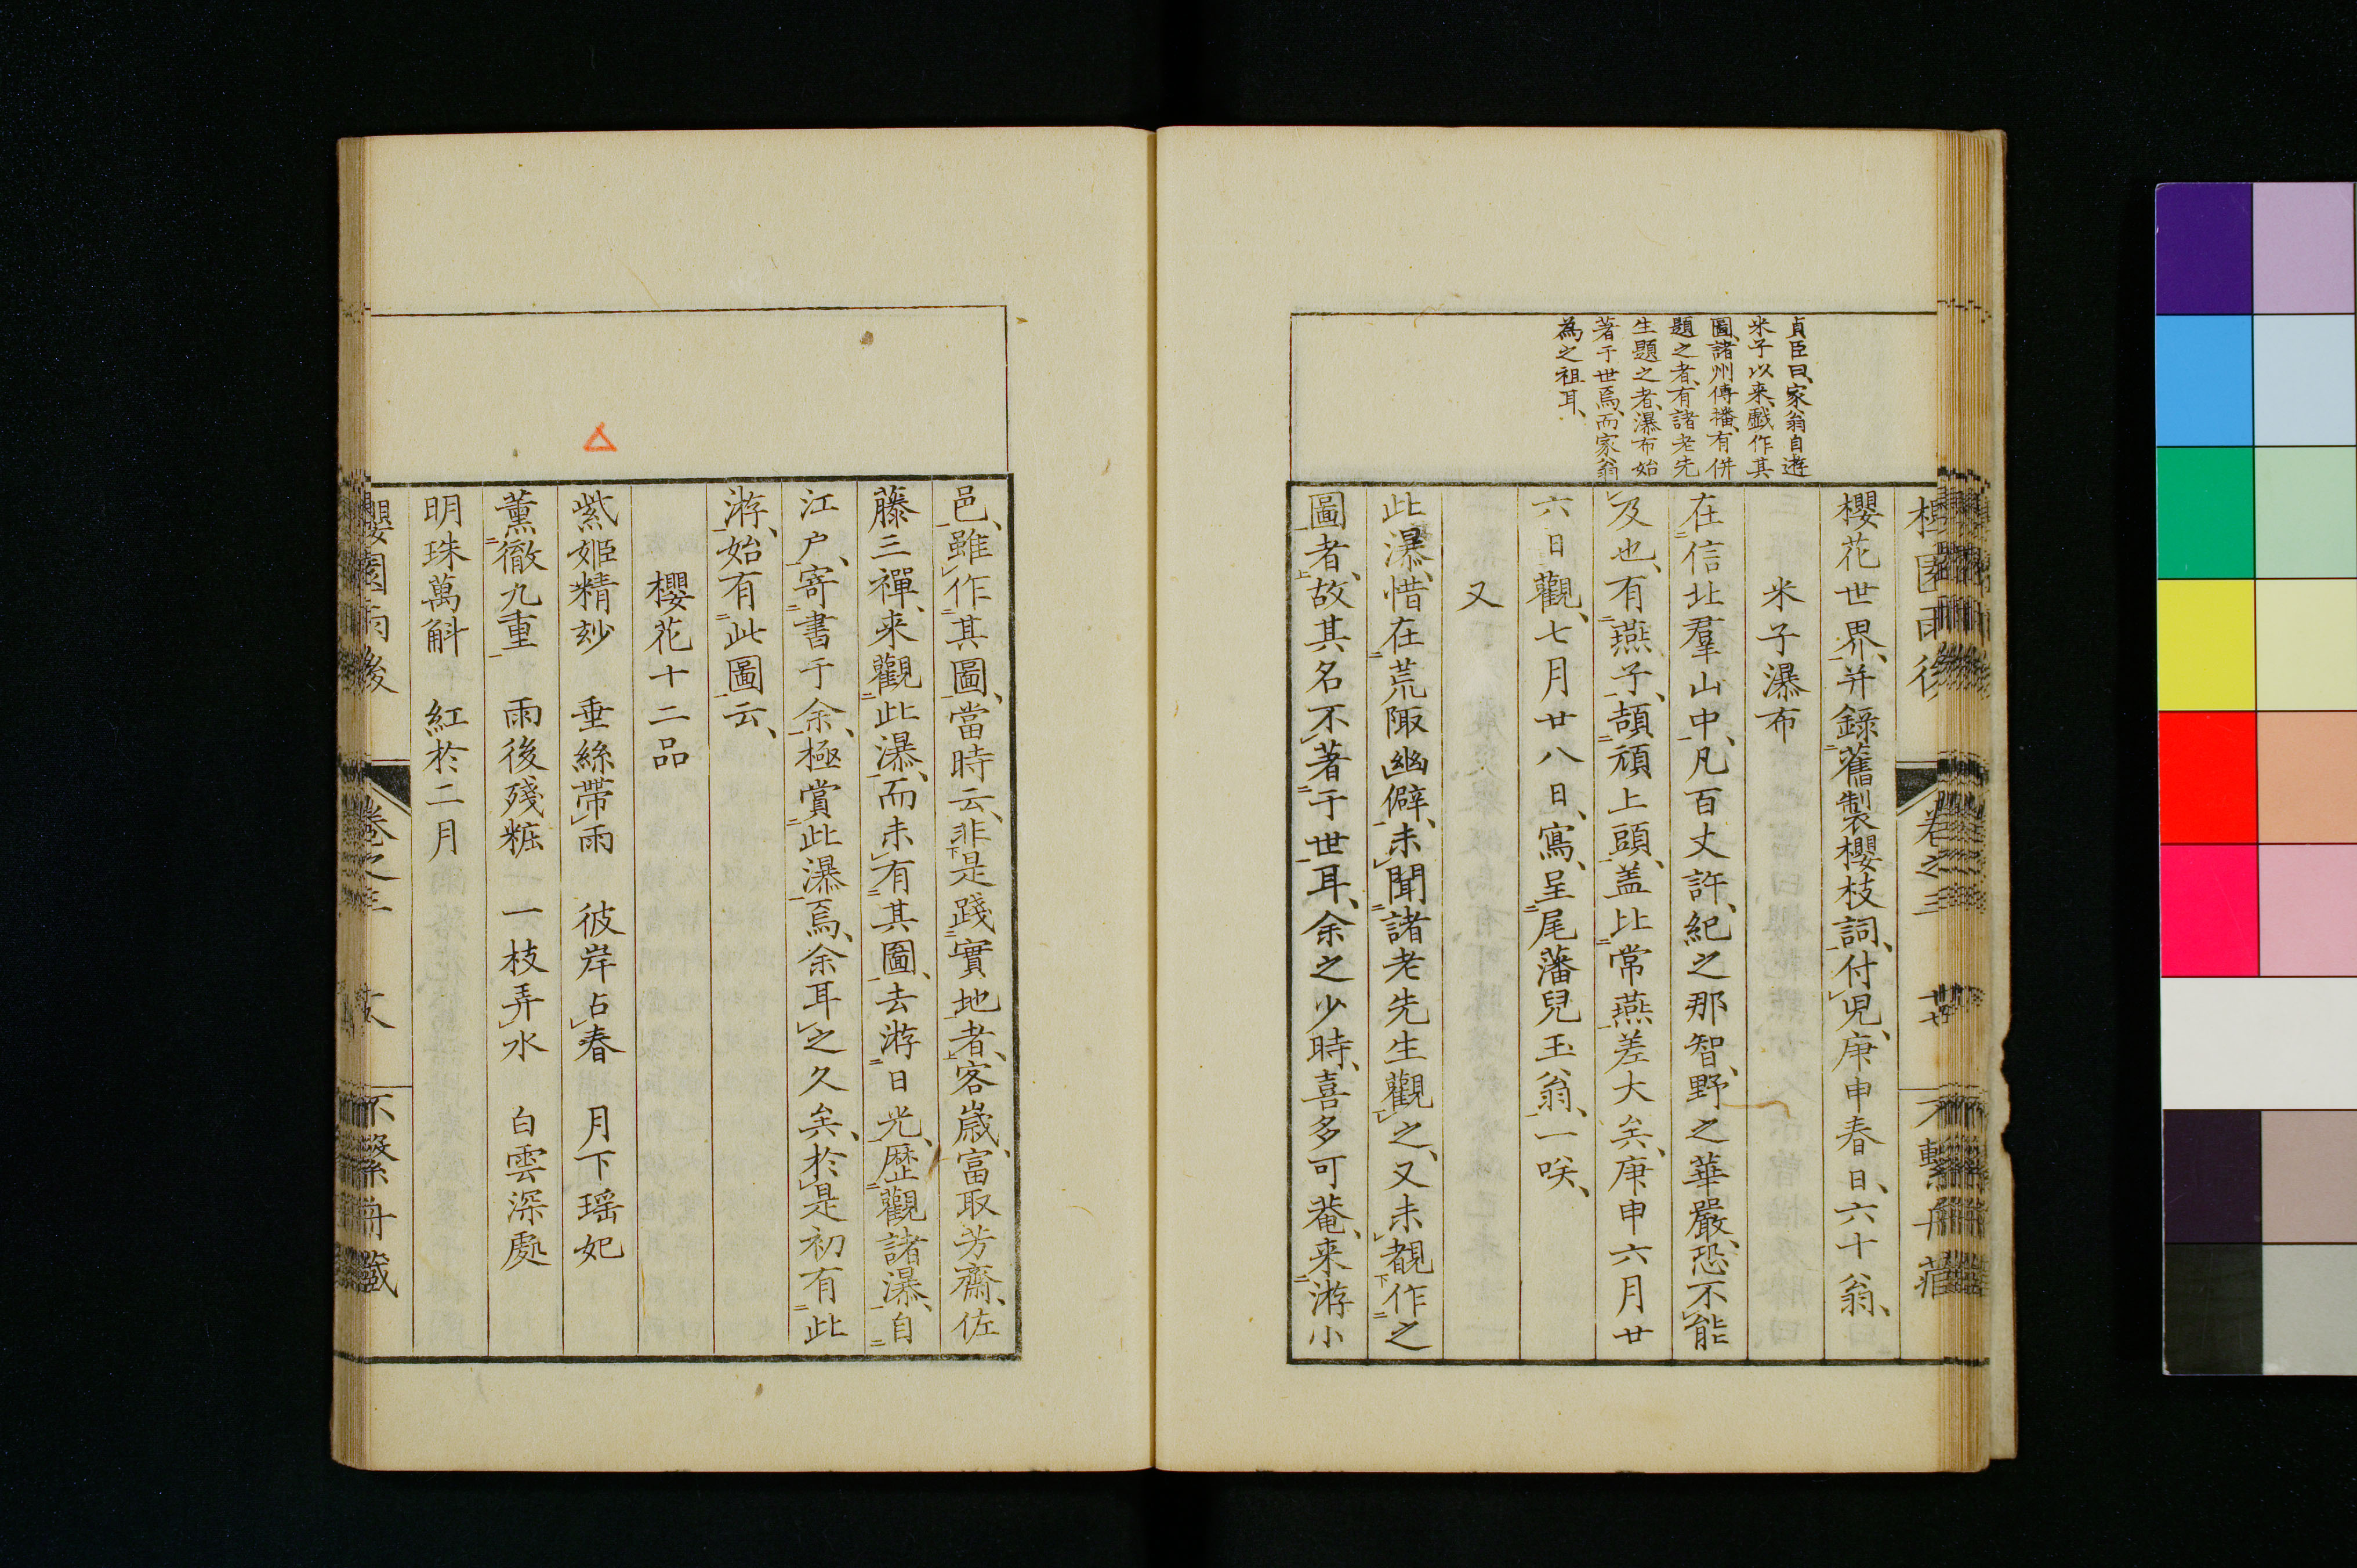 貞臣曰、家翁自遊
米子以来、戯作其
圖、諸州傳播、有併
題之者、有諸老先
生題之者、瀑布始
著于世焉、而家翁
為之祖耳、
櫻花世界、并錄舊製櫻枝詞、付児、庚申春日、六十翁、
米子瀑布
在信北羣山中、凡百丈許、紀之那智、野之華嚴、恐不能
及也、有燕子、頡頏上頭、盖比常燕差大矣、庚申六月廿
六日觀、七月廿八日、寫、呈尾藩兒玉翁、一咲、
又
此瀑、惜在荒陬幽僻、未聞諸老先生觀之、又未覩作之
圖者、故其名不著于世耳、余之少時、喜多可菴、来游小
邑、雖作其圖、當時云、非是踐實地者、客歳、富取芳齋、佐
藤三禪、来觀此瀑、而未有其圖、去游日光、歴觀諸瀑、自
江户、寄書于余、極賞此瀑焉、余耳之久矣、於是初有此
游、始有此圖云、
櫻花十二品
紫姫精玅　垂絲帶雨　彼岸占春　月下瑶妃
薫徹九重　雨後殘粧　一枝弄水　白雲深處
明珠萬斛　紅於二月
櫻園雨後　卷之三　不繫舟藏